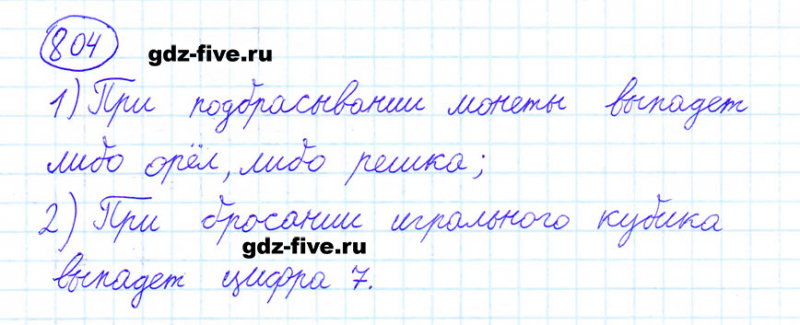 804
gdz-five.ru
1) При подбрасывании монеты выпадет
либо орёл, либо решка;
2) При бросании игрального кубика
gdz-five.ru
выпадет цифра 7.